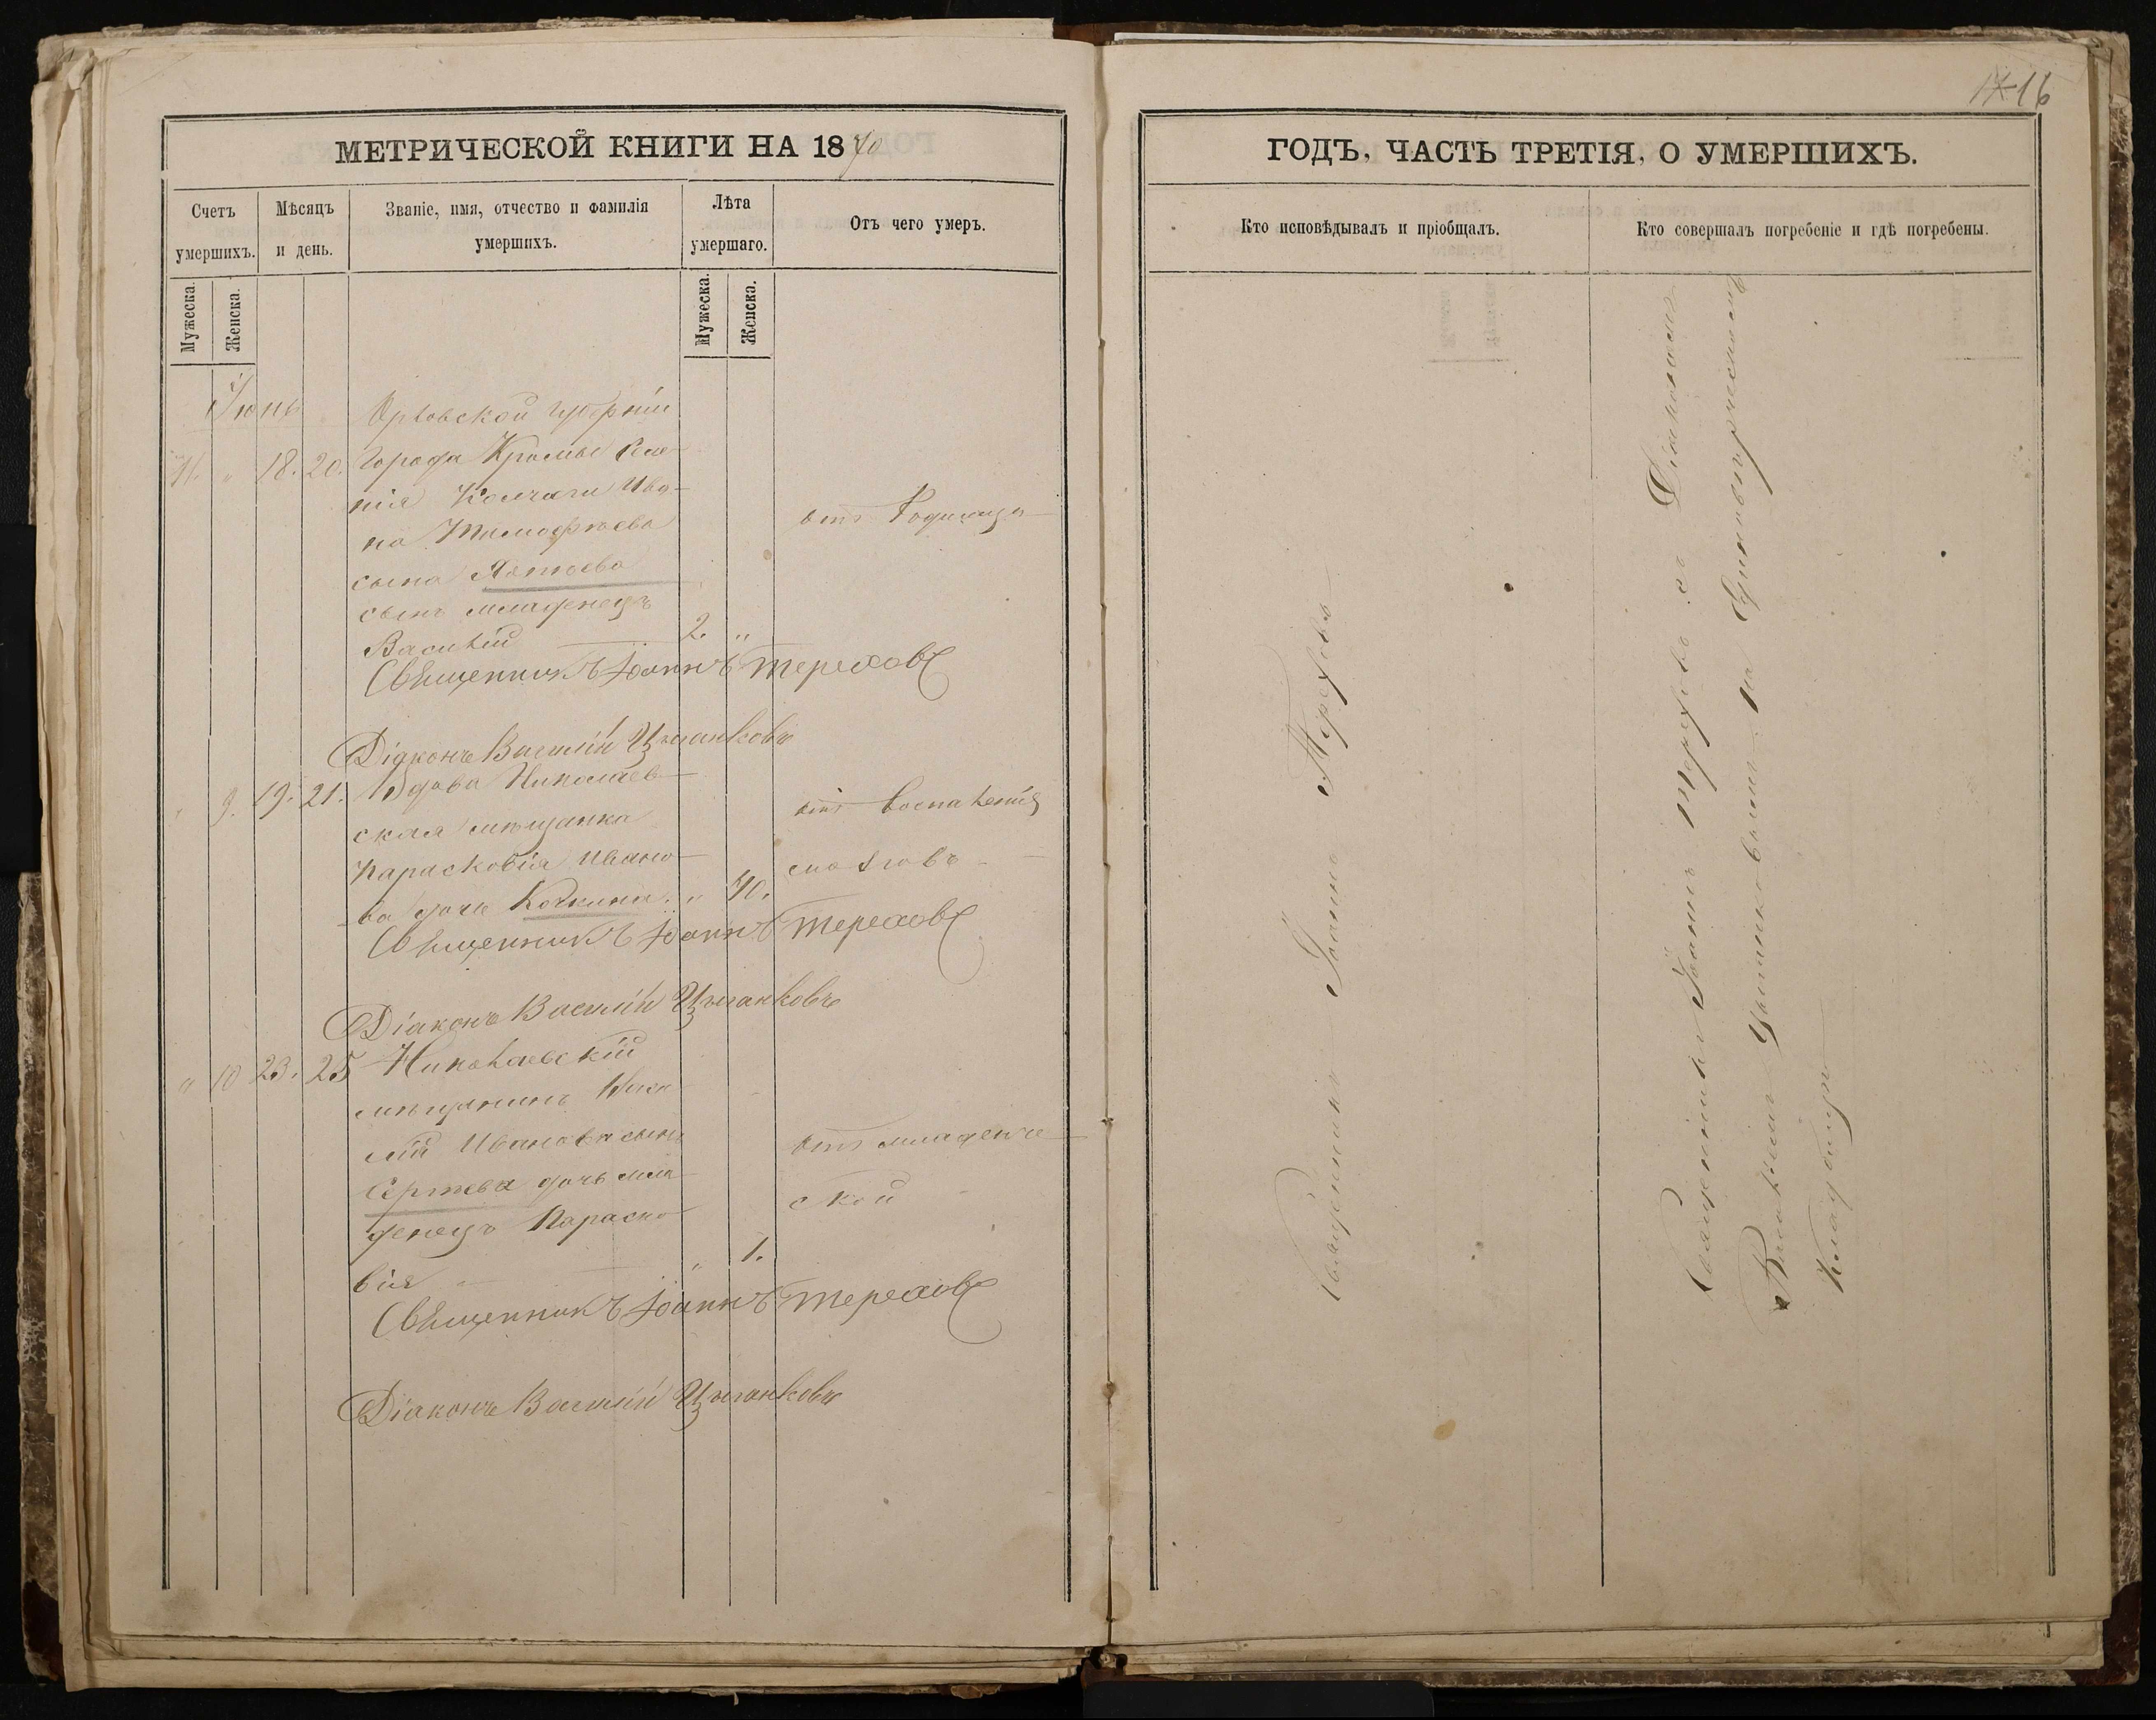 МЕТРИЧЕСКОЙ КНИГИ НА 1870
Счетъ умершихъ.
Мѣсяцъ и день.
Званіе, имя, отчество и фамилія умершихъ.
Лѣта умершаго.
Отъ чего умеръ.
Мужеска.
Женска.
Мужеска.
Женска.
Іюнь
Орловской губерніи
11. " 18. 20. Города Кромы
Ива-
на Тимофѣева
отъ Родимца
сына
сынъ младенецъ
Василій 2. "
Священникъ Іоаннъ Тереховъ
Діаконъ Василій Цыганковъ
" 9. 19. 21. Вдова Николаев-
ская мѣщанка
отъ воспаленія
Парасковія Ивано-
мозговъ
ва дочь Кочкина " 70.
Священникъ Іоаннъ Тереховъ
Діаконъ Василій Цыганковъ
" 10 23. 25 Николаевскій
мѣщанинъ
Иванова сынъ
отъ младенче-
Сергѣева дочь мла-
ской
денецъ Параско-
вія " 1.
Священникъ Іоаннъ Тереховъ
Діаконъ Василій Цыганковъ
16
ГОДЪ, ЧАСТЬ ТРЕТІЯ, О УМЕРШИХЪ.
Кто исповѣдывалъ и пріобщалъ.
Кто совершалъ погребеніе и гдѣ погребены.
Священникъ Іоаннъ Тереховъ
Священникъ Іоаннъ Тереховъ съ Діакономъ
Василіемъ Цыганковымъ на Единовѣрческомъ
Кладбищѣ